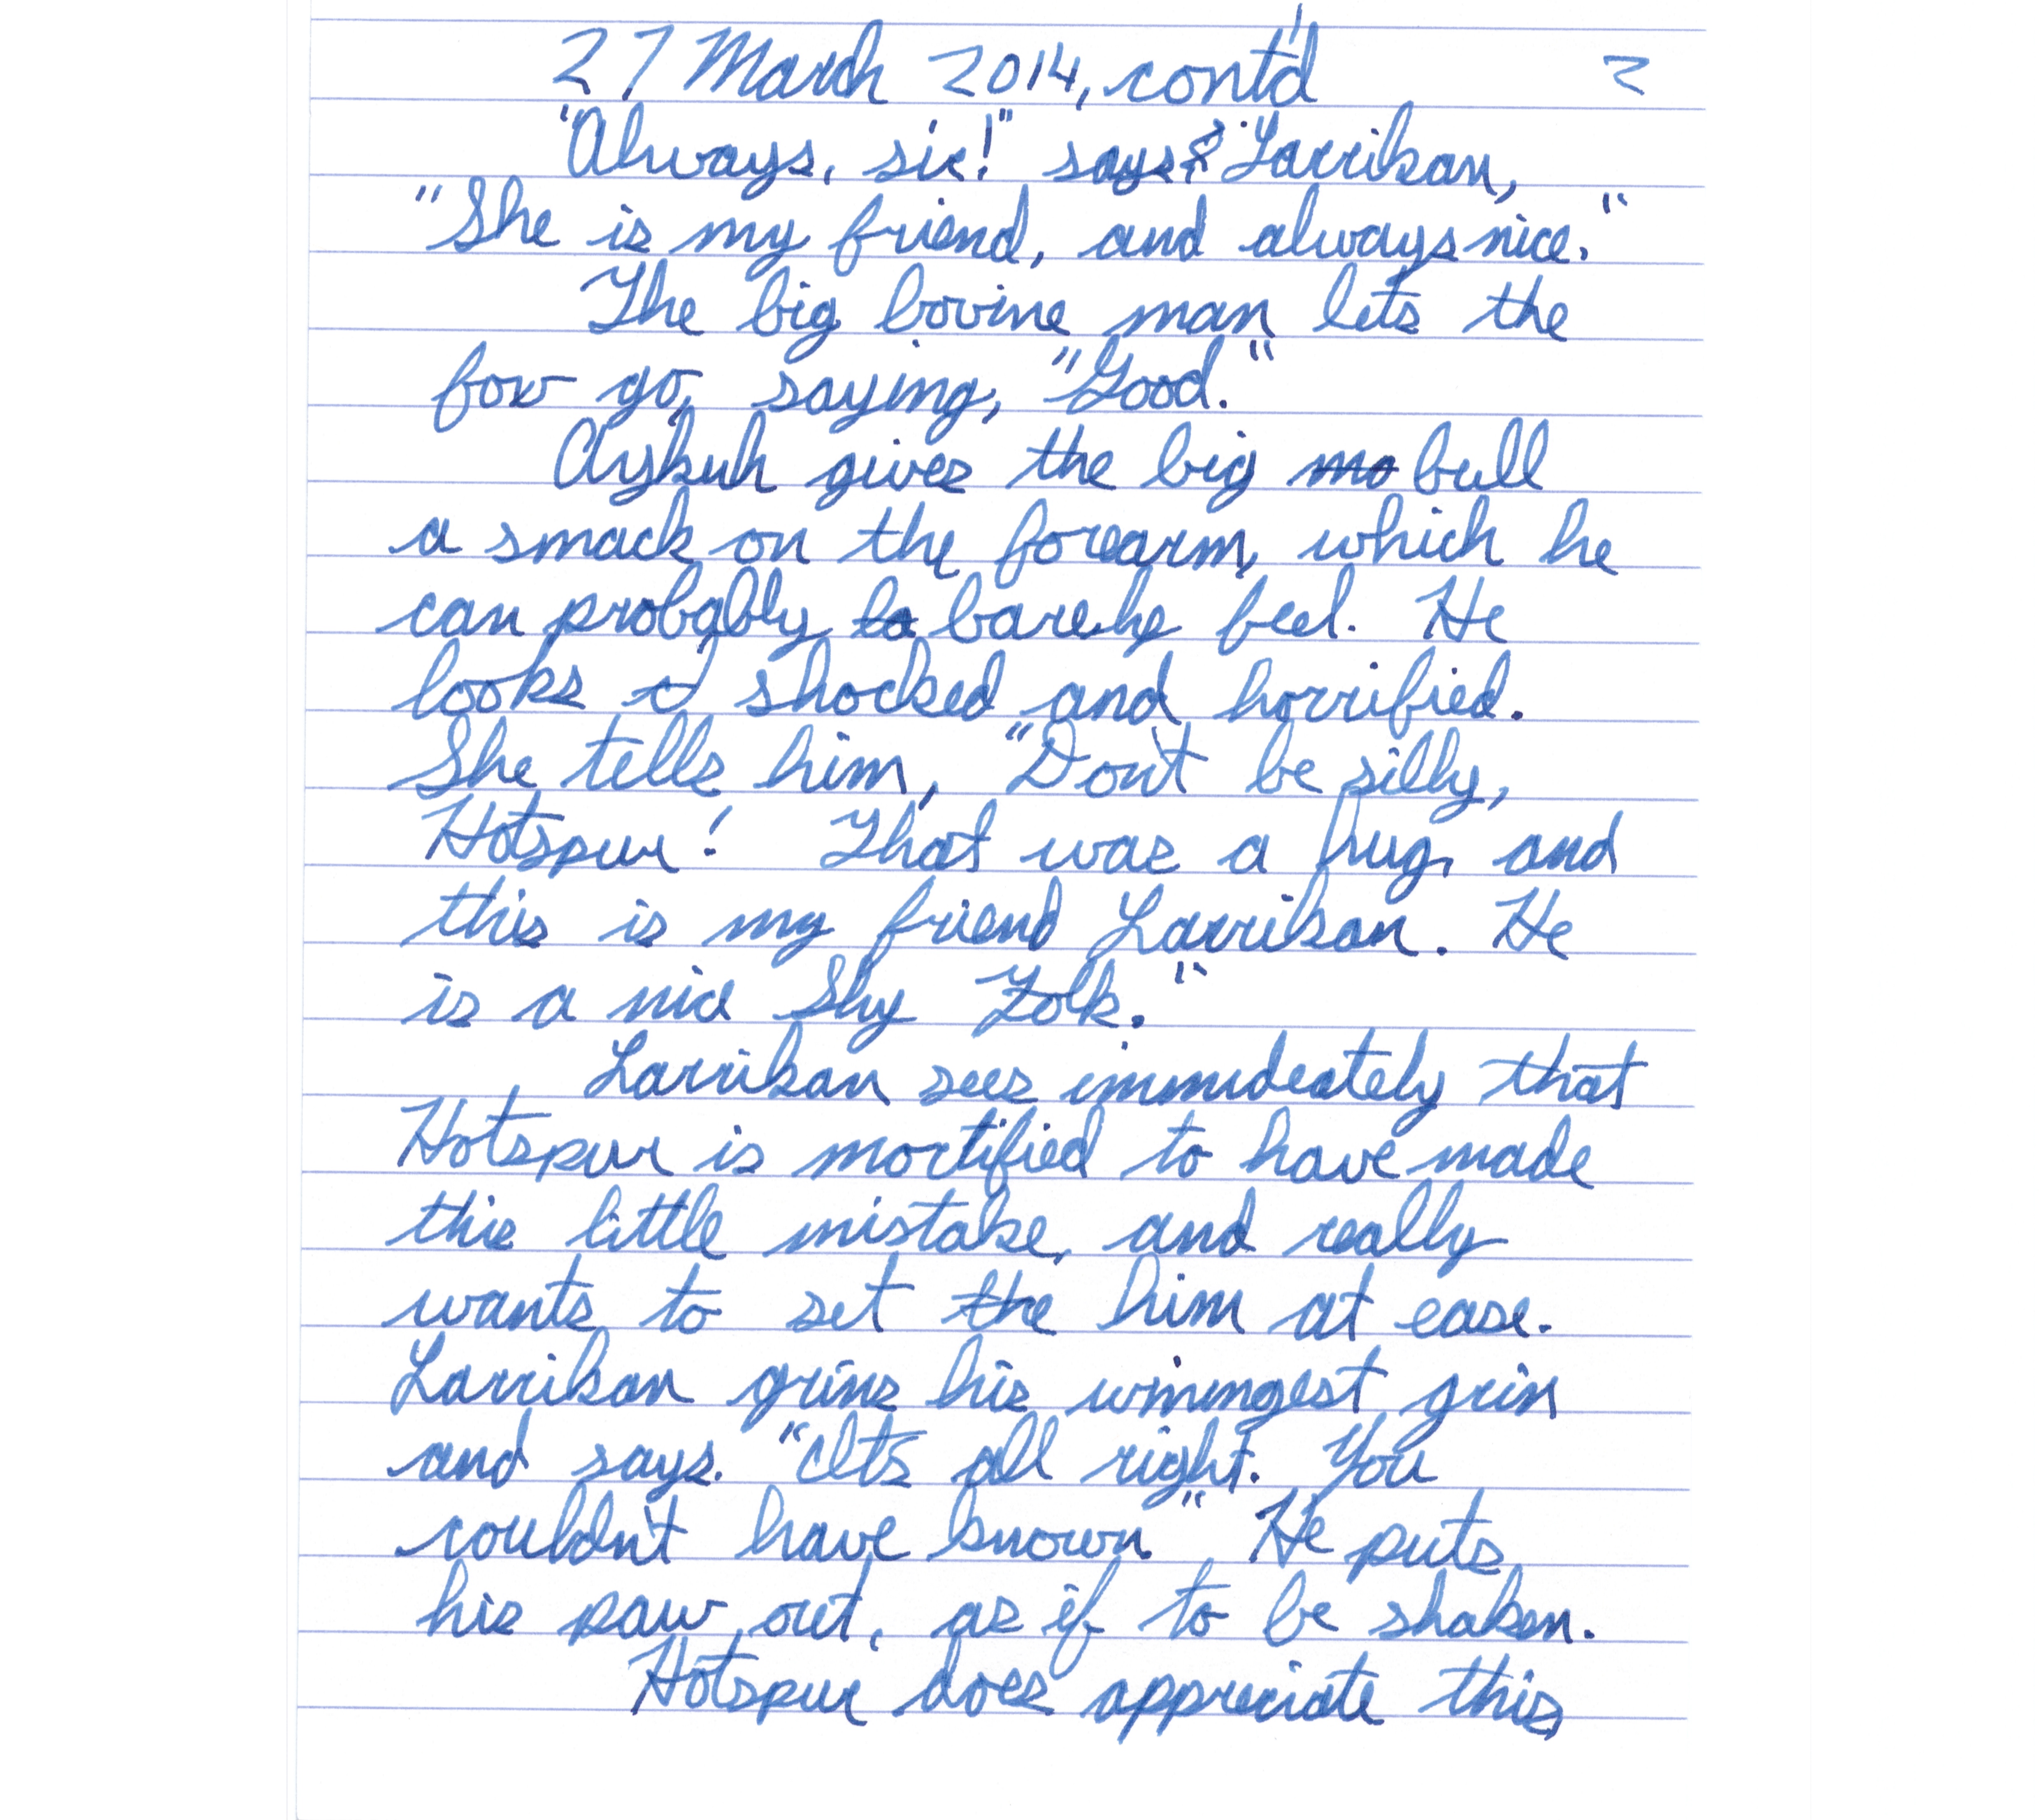 27 March 2014, cont'd 2
"Always, sir!" says Larrikan,
"She is my friend, and always nice."
The big bovine man lets the
fox go, saying, "Good."
Aykuh gives the big mo bull
a smack on the forearm, which he
can probably ba barely feel. He
looks shocked and horrified.
She tells him, "Don't be silly,
Hotspur! That was a hug, and
this is my friend Larrikan. He
is a nice Shy Folk."
Larrikan sees immideately that
Hotspur is mortified to have made
this little mistake, and really
wants to set the him at ease.
Larrikan grins his winningest grin
and says. "It's all right. You
couldn't have known" He puts
his paw out, as if to be shaken.
Hotspur does appreciate this,